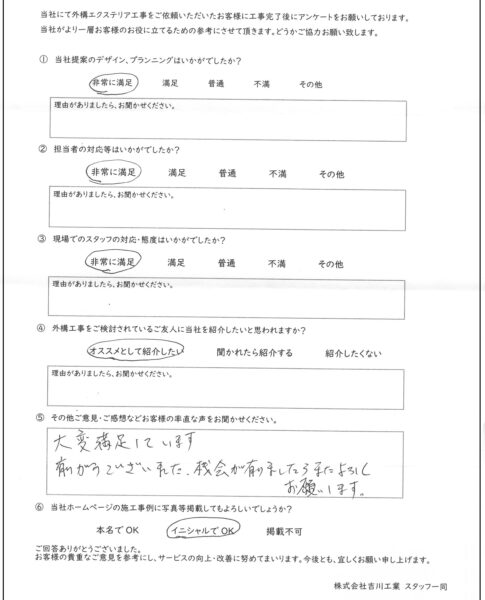 当社にて外構エクステリア工事をご依頼いただいたお客様に工事完了後にアンケートをお願いしております。
当社がより一層お客様のお役に立てるための参考にさせて頂きます。どうかご協力お願い致します。
① 当社提案のデザイン、プランニングはいかがでしたか?
非常に満足 満足 普通 不満 その他
理由がありましたら、お聞かせください。
② 担当者の対応等はいかがでしたか?
非常に満足 満足 普通 不満 その他
理由がありましたら、お聞かせください。
③ 現場でのスタッフの対応・態度はいかがでしたか?
非常に満足 満足 普通 不満 その他
理由がありましたら、お聞かせください。
④ 外構工事をご検討されているご友人に当社を紹介したいと思われますか?
オススメとして紹介したい 聞かれたら紹介する 紹介したくない
理由がありましたら、お聞かせください。
⑤ その他ご意見・ご感想などお客様の率直な声をお聞かせください。
大変満足しています
有りがとうございました。機会が有りましたらまたよろしく
お願いします。
⑥ 当社ホームページの施工事例に写真等掲載してもよろしいでしょうか?
本名でOK イニシャルでOK 掲載不可
ご回答ありがとうございました。
お客様の貴重なご意見を参考にし、サービスの向上・改善に努めてまいります。今後とも、宜しくお願い申し上げます。
株式会社吉川工業 スタッフ一同